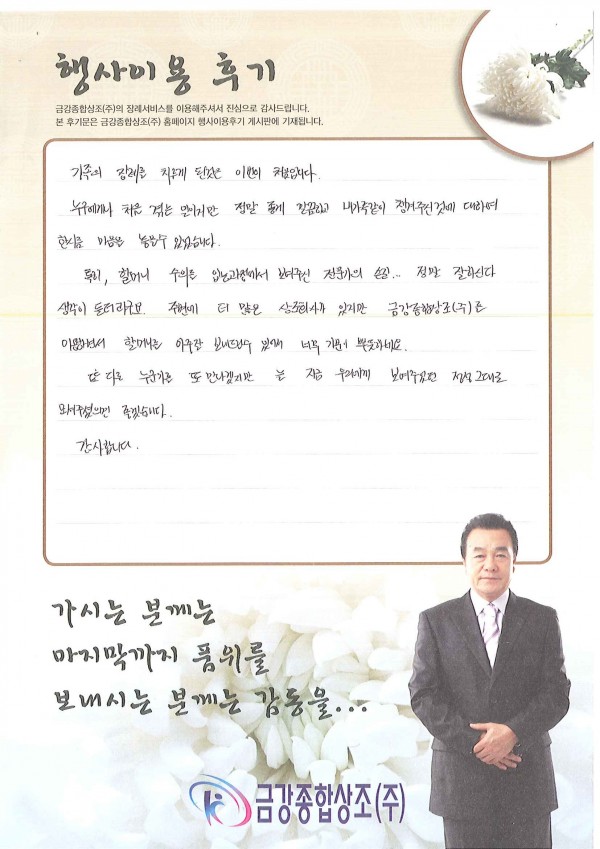 행사이용 후기
금강종합상조(주)의 장례서비스를 이용해주셔서 진심으로 감사드립니다.
본 후기문은 금강종합상조(주) 홈페이지 행사이용후기 게시판에 기재됩니다.
가족의 장례를 치루게 된것은 이번이 처음입니다.
누구에게나 처음 겪는 일이지만 정말 좋게 깔끔하고 내가족같이 챙겨주신것에 대하여
한시름 마음을 놓을수 있었습니다.
특히, 할머니 수의를 입는과정에서 보여주신 전문가의 손길... 정말 잘하신다
생각이 들더라구요. 주변에 더 많은 상조회사가 있지만 금강종합상조(주)를
할머니를 아주잘 보내드릴수 있어서 너무
또 다른 누군가를 또 만나겠지만 는 지금 우리에게 보여주셨던 정성 그대로
보여주셨으면 좋겠습니다.
감사합니다.
가시는 분께는
마지막까지 품위를
보내시는 분께는 감동을...
금강종합상조(주)